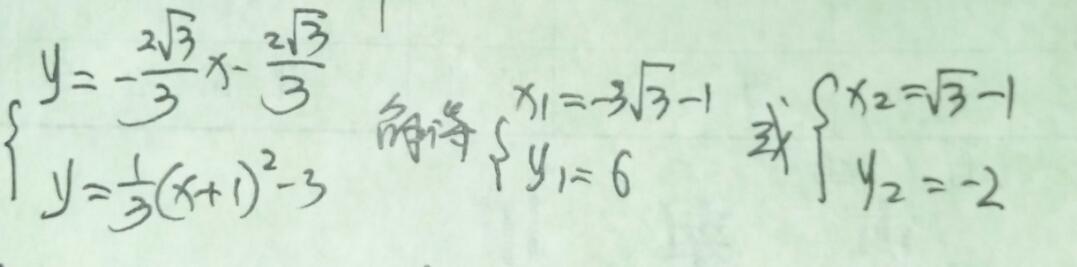 { y = -\frac{2\sqrt{3}}{3}x - \frac{2\sqrt{3}}{3}
y = \frac{1}{3}(x+1)^2 - 3
解得 { x_1 = -3\sqrt{3} - 1
y_1 = 6
或 { x_2 = \sqrt{3} - 1
y_2 = -2